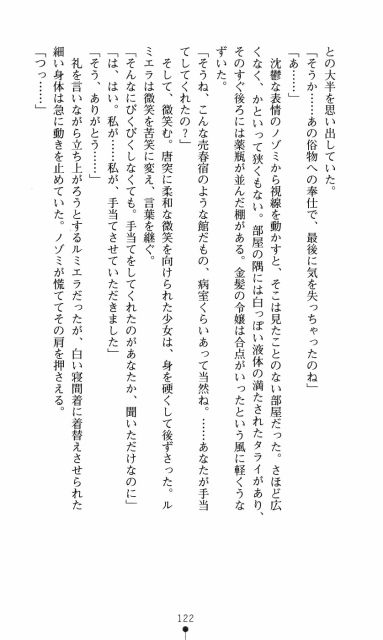 との大半を思い出していた。
「そうか……あの俗物への奉仕で、最後に気を失っちゃったのね」
「あ……」
沈鬱な表情のノゾミから視線を動かすと、そこは見たことのない部屋だった。さほど広
くなく、かといって狭くもない。部屋の隅には白っぽい液体の満たされたタライがあり、
そのすぐ後ろには薬瓶が並んだ棚がある。金髪の令嬢は合点がいったという風に軽くうな
ずいた。
「そうね、こんな売春宿のような館だもの、病室くらいあって当然ね。……あなたが手当
てしてくれたの？」
そして、微笑む。唐突に柔和な微笑を向けられた少女は、身を硬くして後ずさった。ル
ミエラは微笑を苦笑に変え、言葉を継ぐ。
「そんなにびくびくしなくても。手当てをしてくれたのがあなたか、聞いただけなのに」
「は、はい。私が……私が、手当てさせていただきました」
「そう、ありがとう……」
礼を言いながら立ち上がろうとするルミエラだったが、白い寝間着に着替えさせられた
細い身体は急に動きを止めていた。ノゾミが慌ててその肩を押さえる。
「つっ……」
122